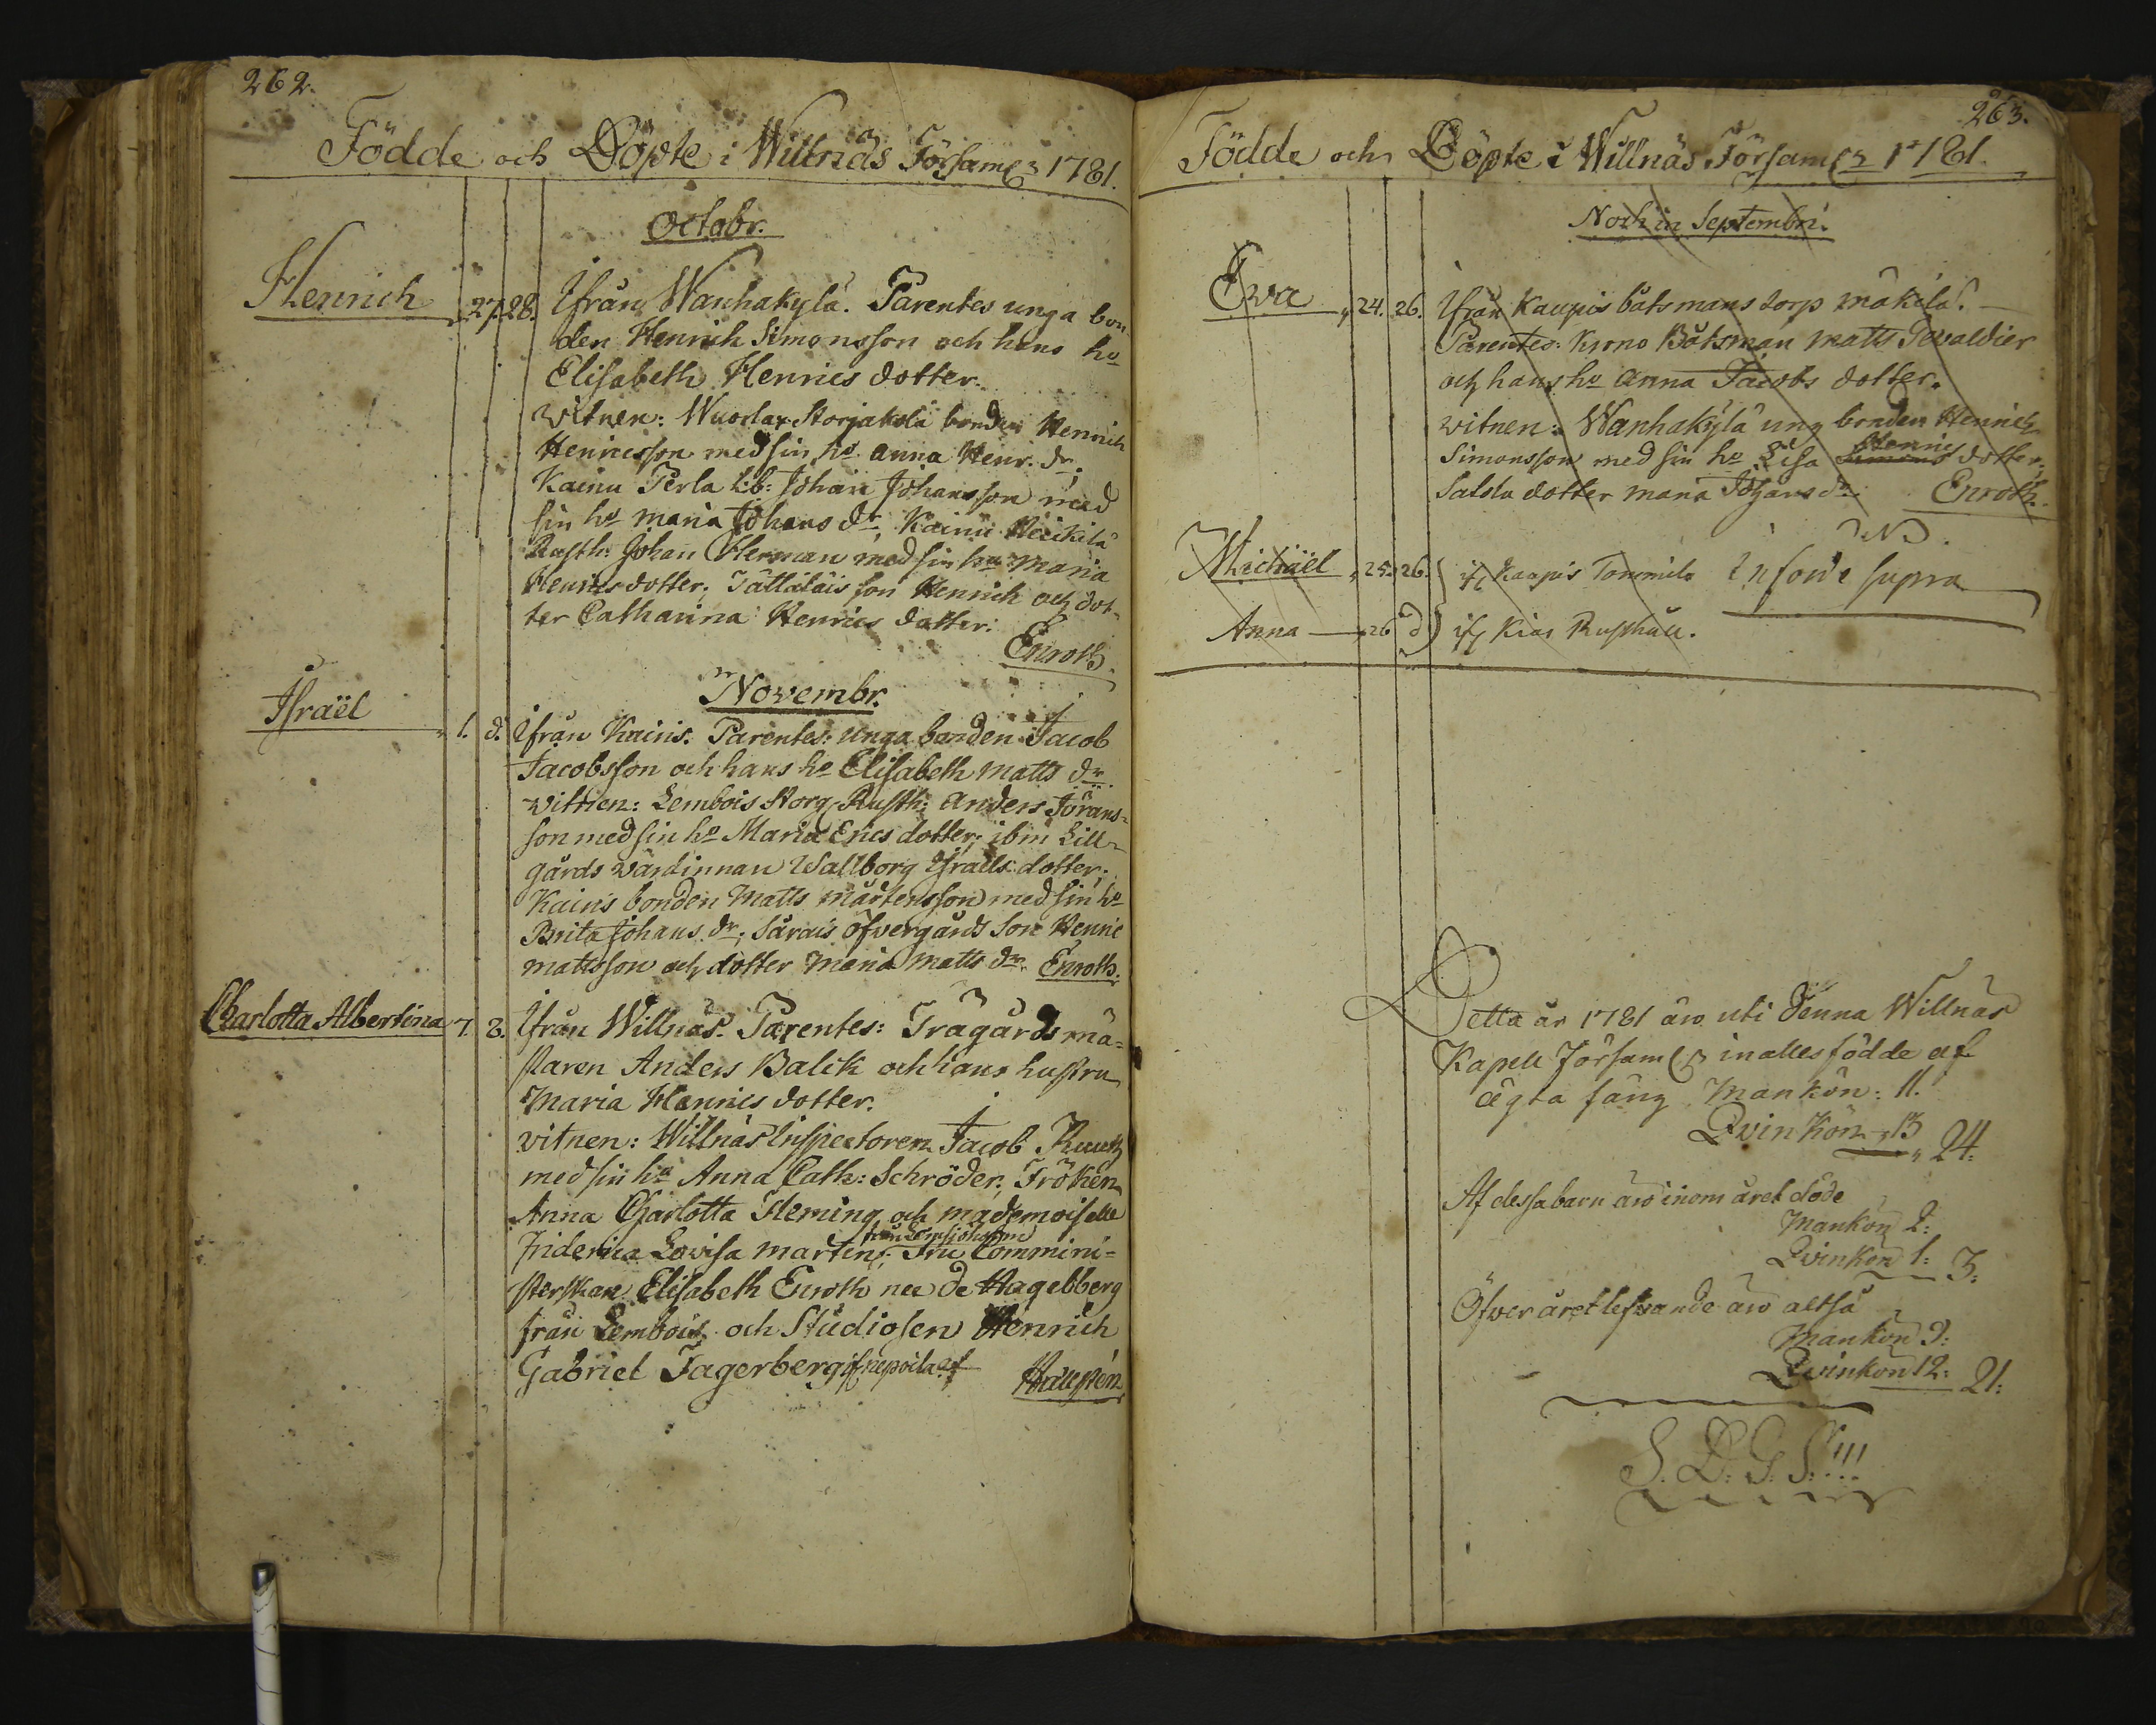 262.
Födde och Döpte i Willnäs Församl 1781.
Octobr.
Henrich 27. 28. Ifrån Wanhakylä. Parentes unga bon
den Henrich Simonsson och hans ho
Elisabeth Henrics dotter.
witnen: Wuorlax Storjakola bonden Henrich
Henricsson med sin ho Anna Henr. dr.
Kainu Perla Johan Johansson med
sin ho Maria Johans dr, Kainu Heikilä
Rusth: Johan Herman med sin hu Maria
Henrics dotter, son Henrich och dot-
ter Catharina Henrics dotter.
Enroth.
Novembr.
Israël 1. d. Ifrån Kainis. Parentes: unga bonden Jacob
Jacobsson och hans ho Elisabeth Matts dr.
witnen: Lembois Storg. Rusth: Anders Jörans-
son med sin ho Maria Erics dotter; ibm Lill-
gårds wärdinnan Wallborg Israels dotter;
Kainis bonden Matts Mårtensson med sin ho
Brita Johans dr; Särais öfvergårds son Henric
Mattsson och dotter Maria Matts dr. Enroth.
Charlotta Albertina 7. 8. Ifrån Willnäs. Parentes: Trägårds mä-
staren Anders Balck och hans hustru
Maria Henrics dotter.
witnen: Willnäs Inspectoren Jacob Ruuth
med sin ho Anna Cath: Schröder, Fröken
Anna Charlotta Fleming och mademoiselle
från Lemsjöholm
Friderica Lovisa Martin; Fru Commini-
sterskan Elisabeth Enroth nee de Hagelberg
från Lembois och Studiosen Henrich
Gabriel Fagerberg
Hallfién
263.
Födde och Döpte i Willnäs Församl 1781.
Noch in Septembri.
Ewa 24. 26. Ifrån Kaupis båtsmans torp mäkilä.
Parentes: Krono Båtsman Matts Tewaldier
och hans ho Anna Jacobs dotter.
witnen: Wanhakylä ung bonden Henrich
Henrics
Simonsson med sin ho Lisa Simons dotter;
Salsla dotter Maria Johans dr. Enroth.
N.
Michäel 25. 26. if Kaupis Tommila införde supra
Anna 26 d if Kias Rusthåll.
Detta år 1781 äro uti denna Willnäs
Kapell Församl inalles födde af
ägta säng Mankön: 11.
Qvinkön 13 24.
Af dessa barn äro inom året döde
Mankön 2:
Qvinkön 1: 3:
Öfver året lefvande äro altså
Mankön 9:
Qvinkön 12: 21:
S. D. G. S!!!